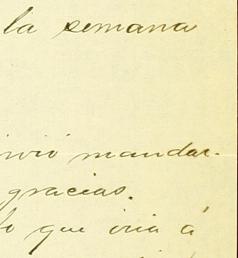 la semana
rvió mandar-
gracias.
lo que iría á